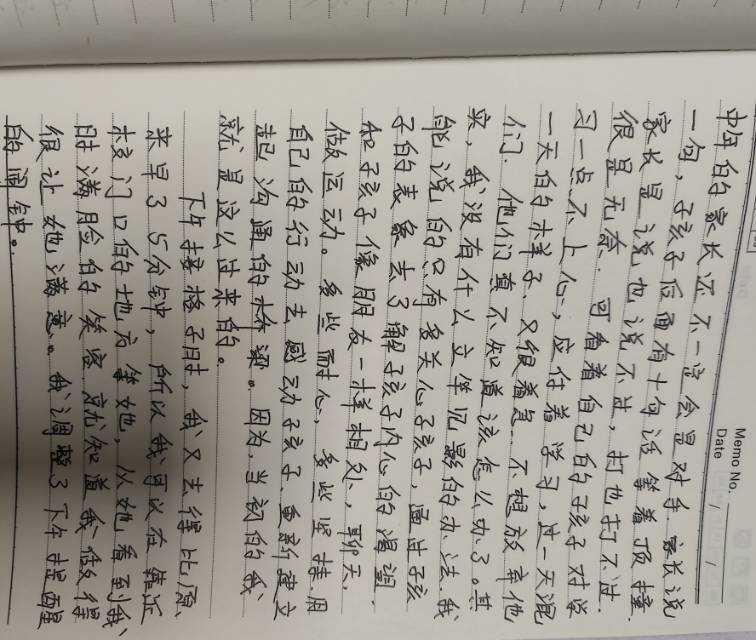 Memo No.
Date / /
中年的家长还不一定会是对手.家长说
一句,孩子后面有十句话等着顶撞.
家长是说也说不过,打也打不过.
很是无奈.可看着自己的孩子对学
习一点不上心,应付着学习,过一天混
一天的样子.又很着急.不想放弃他
们.他们真不知道该怎么办了。其
实,我没有什么立竿见影的办法.我
能说的只有多关心孩子,通过孩
子的表象去了解孩子内心的渴望
和孩子像朋友一样相处,聊天,
做运动。多些耐心,多些坚持用
自己的行动去感动孩子.重新建立
起沟通的桥梁。因为,当初的我
就是这么过来的。
下午接格子时,我又去得比原
来早35分钟,所以我可以在靠近
校门口的地方等她,从她看到我
时满脸的笑容就知道我做得
很让她满意。我调整了下午提醒
的闹钟。